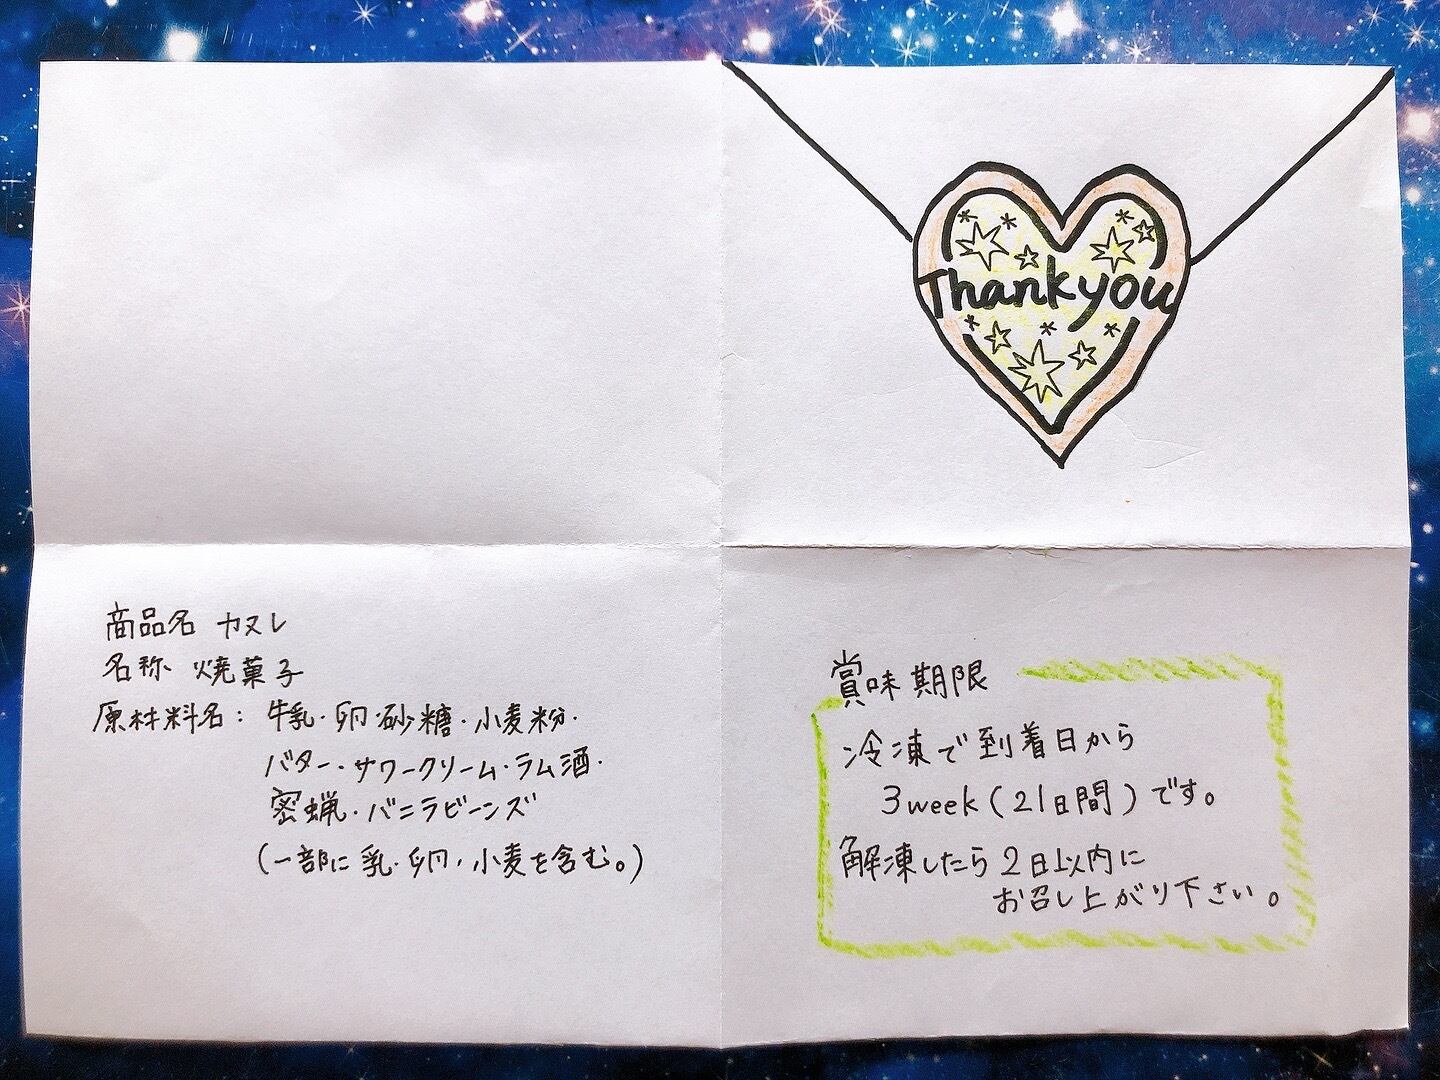 Thank you
商品名 カヌレ
名称 焼菓子
原材料名: 牛乳・卵・砂糖・小麦粉・
バター・サワークリーム・ラム酒・
密蝋・バニラビーンズ
(一部に乳・卵・小麦を含む。)
賞味期限
冷凍で到着日から
3week(21日間)です。
解凍したら2日以内に
お召し上がり下さい。